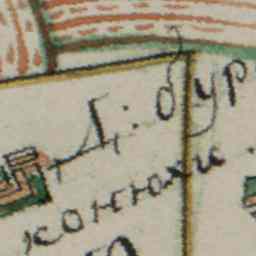 Д: бур
конюхи.